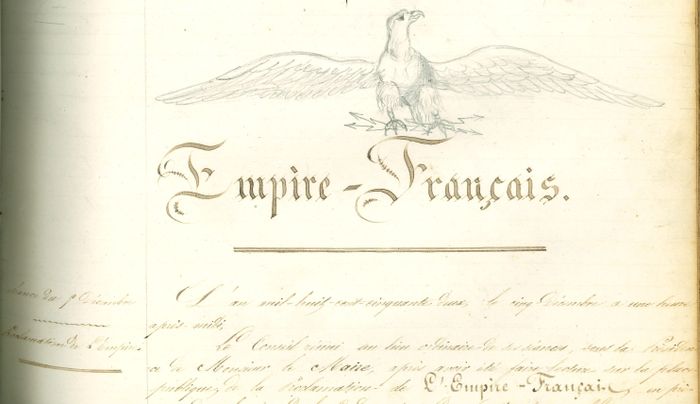 Empire-Français.
Séance du 5 Décembre
Proclamation de l'Empire
L'an mil-huit-cent-cinquante deux, le cinq Décembre à une heure
après midi,
Le Conseil réuni au lieu ordinaire de ses séances, sous la Présiden
ce de Monsieur le Maire, après avoir été faire lecture sur la place
publique, de la Proclamation de L'Empire-Français, en